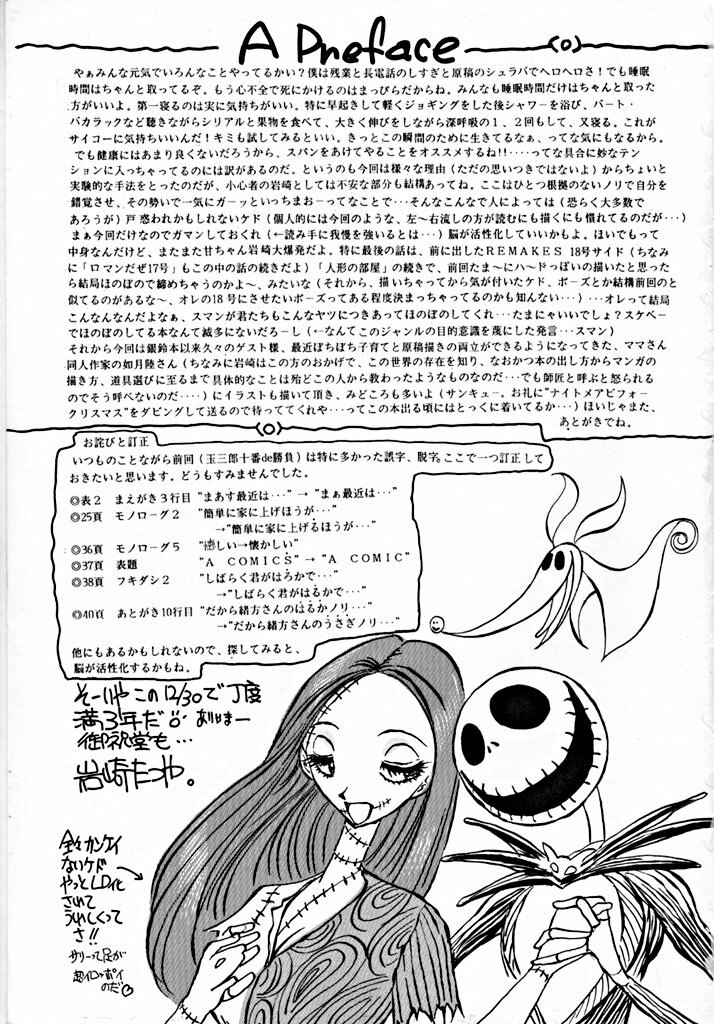 A Preface
やぁみんな元気でいろんなことやってるかい？僕は残業と長電話のしすぎと原稿のシュラバでヘロヘロさ！でも睡眠
時間はちゃんと取ってるぞ。もう心不全で死にかけるのはまっぴらだからね。みんなも睡眠時間だけはちゃんと取った
方がいいよ。第一寝るのは実に気持ちがいい。特に早起きして軽くジョギングをした後シャワーを浴び、バート・
バカラックなど聴きながらシリアルと果物を食べて、大きく伸びをしながら深呼吸の１、２回もして、又寝る。これが
サイコーに気持ちいいんだ！キミも試してみるといい。きっとこの瞬間のために生きてるなぁ、ってな気にもなるから。
でも健康にはあまり良くないだろうから、スパンをあけてやることをオススメするね!!‥‥ってな具合に妙なテン
ションに入っちゃってるのには訳があるのだ。というのも今回は様々な理由（ただの思いつきではないよ）からちょいと
実験的な手法をとったのだが、小心者の岩崎としては不安な部分も結構あってね。ここはひとつ根拠のないノリで自分を
錯覚させ、その勢いで一気にガーッといっちまおーってなことで‥‥そんなこんなで人によっては（恐らく大多数で
あろうが）戸惑われかもしれないケド（個人的には今回のような、左～右流しの方が読むにも描くにも慣れてるのだが‥‥）
まぁ今回だけなのでガマンしておくれ（←読み手に我慢を強いるとは‥‥）脳が活性化していいかもよ。ほいでもって
中身なんだけど、またまた甘ちゃん岩崎大爆発だよ。特に最後の話は、前に出したＲＥＭＡＫＥＳ 18号サイド（ちなみ
に「ロマンだぜ17号」もこの中の話の続きだよ）「人形の部屋」の続きで、前回たま～にハ～ドっぽいの描いたと思った
ら結局ほのぼので締めちゃうのかよ～、みたいな（それから、描いちゃってから気が付いたケド、ポーズとか結構前回のと
似てるのがあるな～、オレの18号にさせたいポーズってある程度決まっちゃってるのかも知んない‥‥）‥‥オレって結局
こんなんなんだよなぁ、スマンが君たちもこんなヤツにつきあってほのぼのしてくれ‥‥たまにゃいいでしょ？スケベー
でほのぼのしてる本なんて滅多にないだろーし（←なんてこのジャンルの目的意識を蔑にした発言‥‥スマン）
それから今回は銀鈴本以来久々のゲスト様、最近ぼちぼち子育てと原稿描きの両立ができるようになってきた、ママさん
同人作家の如月陸さん（ちなみに岩崎はこの方のおかげで、この世界の存在を知り、なおかつ本の出し方からマンガの
描き方、道具選びに至るまで具体的なことは殆どこの人から教わったようなものなのだ‥‥でも師匠と呼ぶと怒られる
のでそう呼べないのだ‥‥）にイラストも描いて頂き、みどころも多いよ（サンキュー。お礼に"ナイトメアビフォー
クリスマス"をダビングして送るので待っててくれや‥‥ってこの本出る頃にはとっくに着いてるか‥‥）ほいじゃまた、
あとがきでね。
お詫びと訂正
いつものことながら前回（玉三郎十番de勝負）は特に多かった誤字、脱字。ここで一つ訂正して
おきたいと思います。どうもすみませんでした。
◎表２　まえがき３行目　"まあす最近は‥‥"→"まぁ最近は‥‥"
◎25頁　モノローグ２　"簡単に家に上げほうが‥‥"
→"簡単に家に上げるほうが‥‥"
◎36頁　モノローグ５　"悔しい→懐かしい"
◎37頁　表題　"A COMICS"→"A COMIC"
◎38頁　フキダシ２　"しばらく君がはろかで‥‥"
→"しばらく君がはるかで‥‥"
◎40頁　あとがき10行目　"だから緒方さんのはるかノリ‥‥"
→"だから緒方さんのうさぎノリ‥‥"
他にもあるかもしれないので、探してみると、
脳が活性化するかもね。
そーいや この 12/30で丁度
満3年だ
御祝堂も…
岩崎たつや。
全々カンケイ
ないケド
やっとLD化
されて
うれしくって
さ!!
サリーって足が
超イロッポイ
のだ♡